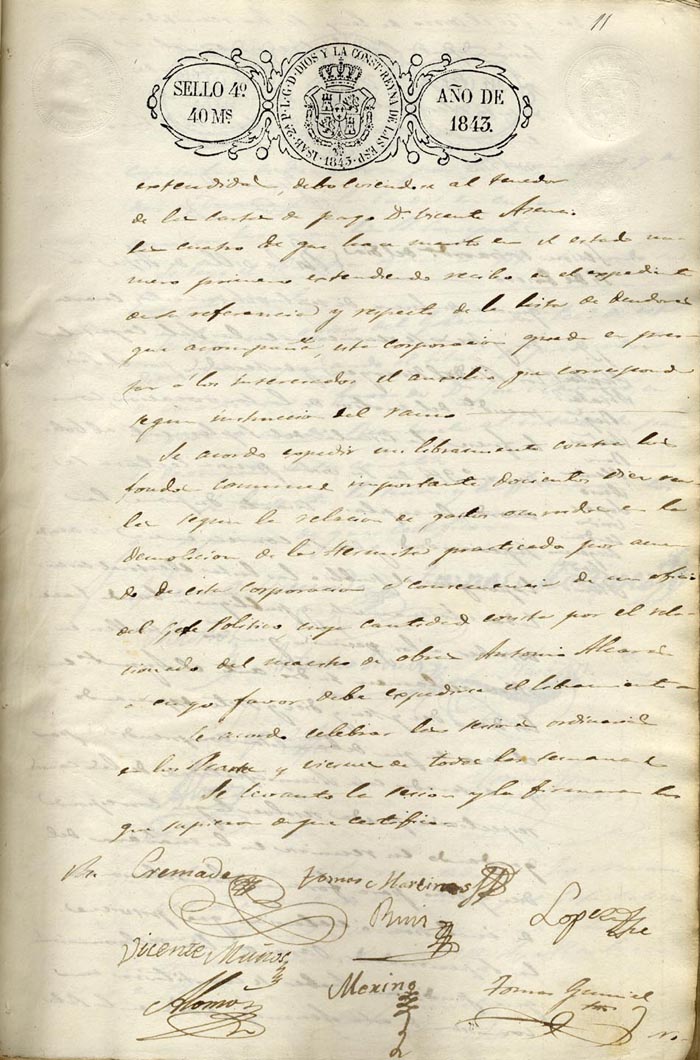 11
SELLO 4º
40 Mˢ
ISAB. 2ª P. L. G. D. DIOS Y LA CONST. REYNA DE LAS ESP.
1843
AÑO DE
1843.
extendida, devolviendose al tenedor
de la carta de pago D. Vicente Asensi
las cuatro de que hace merito en el estado nu
mero primero extendiendo recibo en el expediente
de su referencia y respecto de la lista de deudores
que acompaña, esta corporacion queda en pres
tar á los interesados el aucilio que corresponde
segun instruccion del ramo
Se acordo expedir un libramiento contra los
fondos comunes importante docientos diez rea
les segun la relacion de gastos ocurridos en la
demolicion de la Hermita practicada por acuer
do de esta corporacion á consecuencia de un oficio
del Gefe Politico, cuya cantidad consta por el rela
cionado del maestro de obras Antonio Alcaráz
á cuyo favor debe expedirse el libramiento
Se acordo celebrar las sesiones ordinarias
en los Martes y viernes de todas las semanas
Se levanto la sesion y la firmaron los
que supieron de que certifico
Cremades
Tomas Martinez
Ruiz
Lopez
Vicente Muños
Alomos
Merino
Tomas